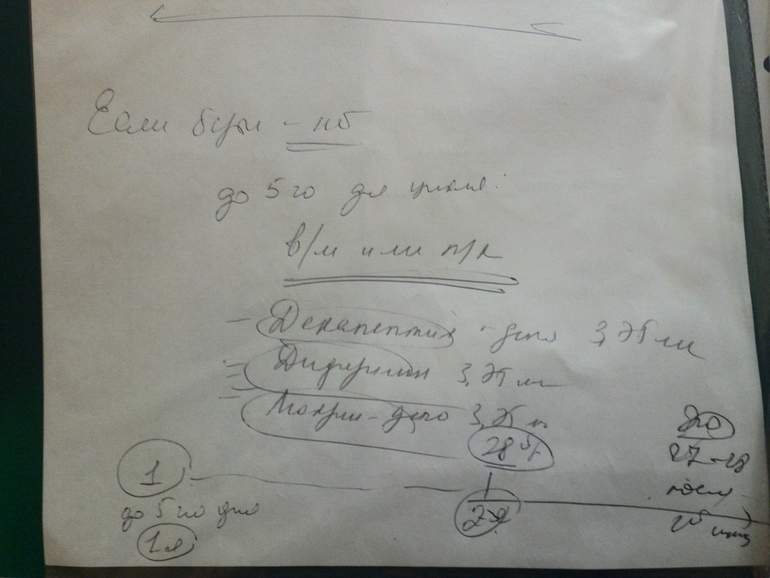 Если беры - нб
до 5 го дня цикла:
в/м или п/к
- Декапептил - депо 3,75 мг
- Диферелин 3,75 мг
- Люкрин - депо 3,75 мг
28 д
1
2я
до 5 го дня
1я
27-28